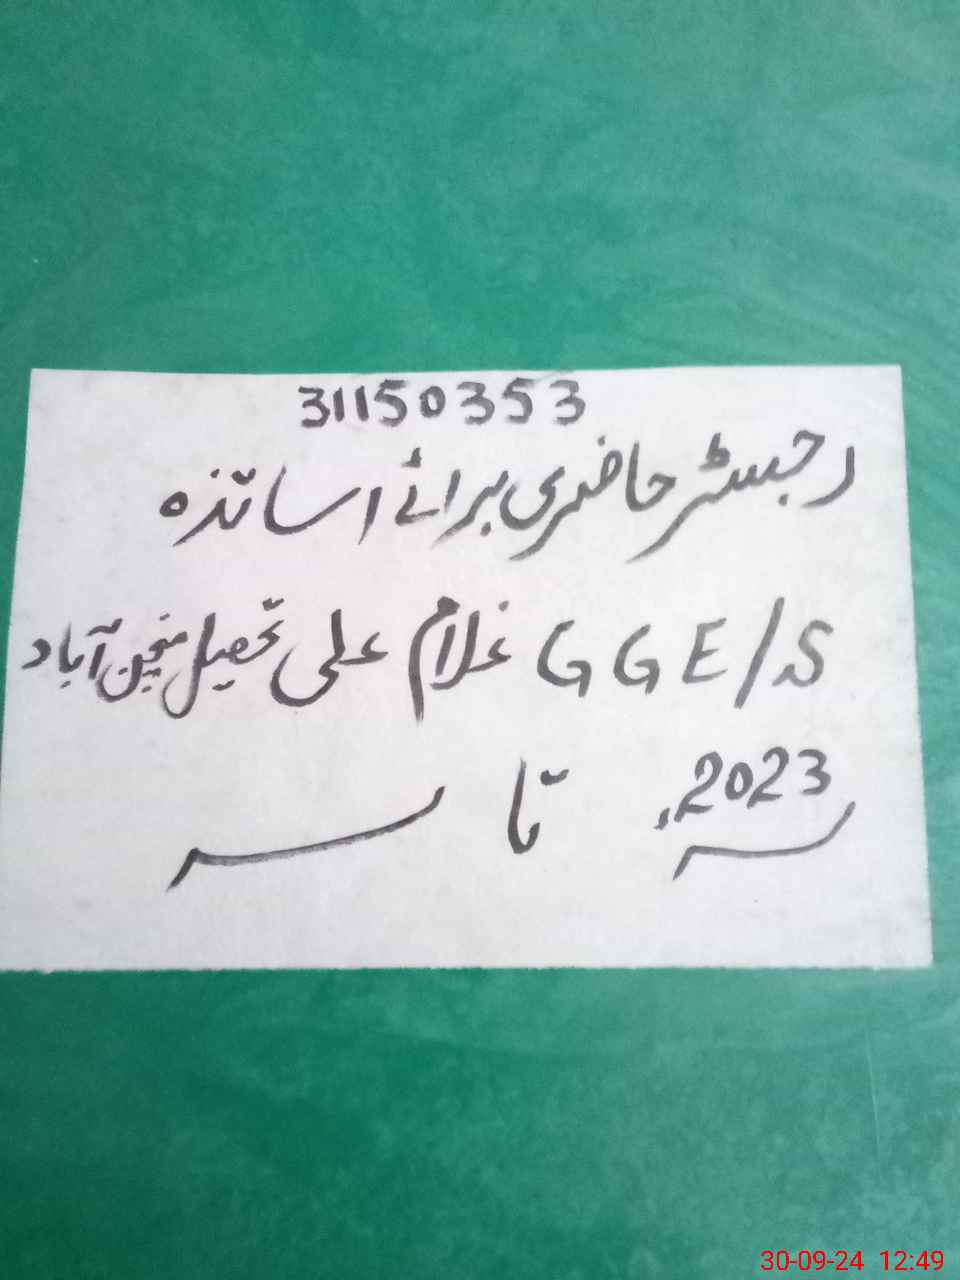 31150353
رجسٹر حاضری برائے اساتذہ
GGE/S غلام علی تحصیل منچن آباد
2023ء تا
30-09-24 12:49